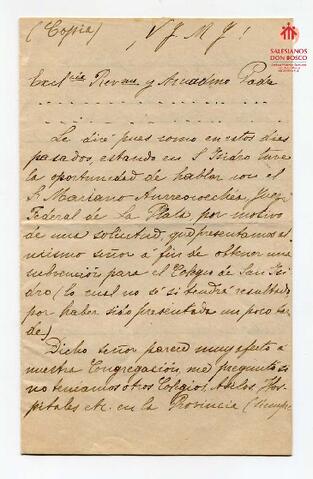 SALESIANOS
DON BOSCO
(Copia)
¡V J M J!
Exc cia Reven y Amadmo Padre
Le diré pues como en estos dias
pasados, estando en S. Isidro tuve
la oportunidad de hablar con el
Sr Mariano Aurrecoechea, Juez
Federal de La Plata, por motivo
de una solicitud, que presentamos al
mismo señor a fin de obtener una
subvención para el Colegio de San Isi
dro (lo cual no sé si tendrá resultado
por haber sido presentada un poco tar
de)
Dicho señor pareció muy afecto a
nuestra Congregación, me preguntó si
no teniamos otros Colegios, Asilos, Hos-
pitales etc. en la Provincia (siempre